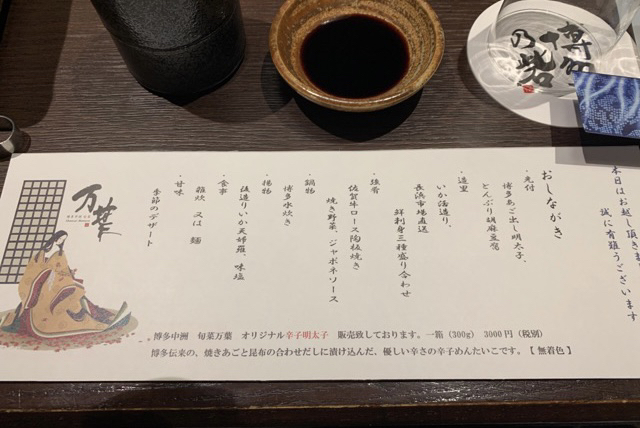 本日はお越し頂きま
誠に有難うございます
おしながき
・先付
博多あご出し明太子、
どんぶり胡麻豆腐
・造里
いか活造り、
長浜市場直送
鮮魚刺身三種盛り合わせ
・強肴
佐賀牛ロース陶板焼き
焼き野菜、ジャポネソース
・鍋物
博多水炊き
・揚物
後造りいか天婦羅、味塩
・食事
雑炊 又は 麺
・甘味
季節のデザート
万葉
博多中洲 旬菜万葉 オリジナル辛子明太子 販売致しております。一箱(300g) 3000円(税別)
博多伝来の、焼きあごと昆布の合わせだしに漬け込んだ、優しい辛さの辛子めんたいこです。【無着色】